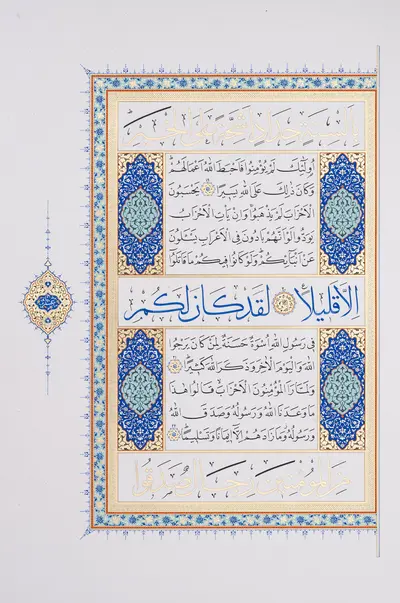 بِاَلْسِنَةٍ حِدَادٍ اَشِحَّةً عَلَى الْخَيْرِ
اُولٰئِكَ لَمْ يُؤْمِنُوا فَاَحْبَطَ اللّٰهُ اَعْمَالَهُمْ
وَكَانَ ذٰلِكَ عَلَى اللّٰهِ يَسِيرًا يَحْسَبُونَ
الْاَحْزَابَ لَمْ يَذْهَبُوا وَاِنْ يَاْتِ الْاَحْزَابُ
يَوَدُّوا لَوْ اَنَّهُمْ بَادُونَ فِي الْاَعْرَابِ يَسْئَلُونَ
عَنْ اَنْبَائِكُمْ وَلَوْ كَانُوا فِيكُمْ مَا قَاتَلُوا
اِلَّا قَلِيلًا لَقَدْ كَانَ لَكُمْ
فِي رَسُولِ اللّٰهِ اُسْوَةٌ حَسَنَةٌ لِمَنْ كَانَ يَرْجُوا
اللّٰهَ وَالْيَوْمَ الْاٰخِرَ وَذَكَرَ اللّٰهَ كَثِيرًا
وَلَمَّا رَاَ الْمُؤْمِنُونَ الْاَحْزَابَ قَالُوا هٰذَا
مَا وَعَدَنَا اللّٰهُ وَرَسُولُهُ وَصَدَقَ اللّٰهُ
وَرَسُولُهُ وَمَا زَادَهُمْ اِلَّا اِيمَانًا وَتَسْلِيمًا
مِنَ الْمُؤْمِنِينَ رِجَالٌ صَدَقُوا